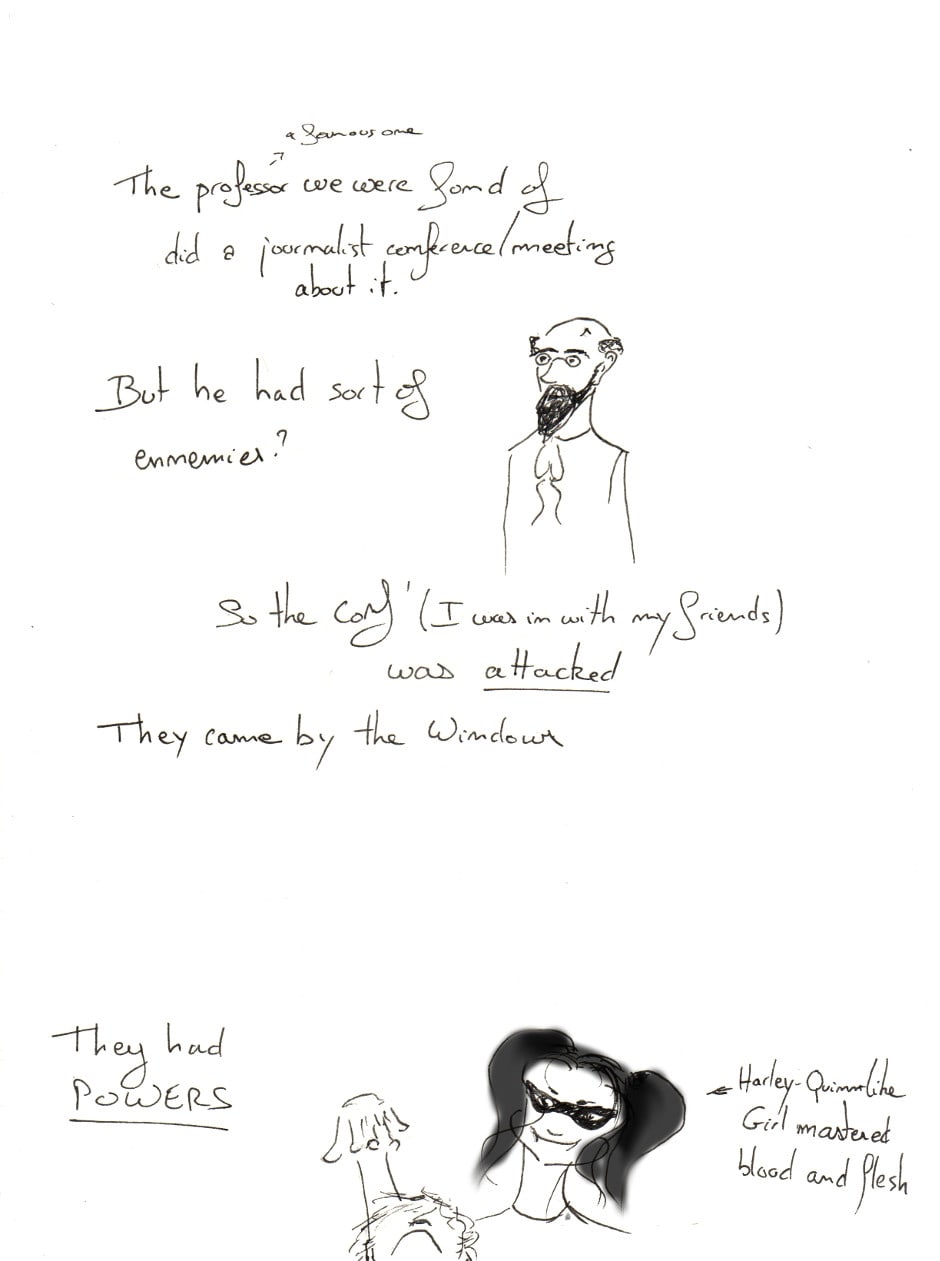 a famous one
The professor we were fond of
did a journalist conference/meeting
about it.
But he had sort of
ennemies?
So the conf' (I was in with my friends)
was attacked
They came by the Window
They had
POWERS
Harley-Quinn-like
Girl mastered
blood and flesh